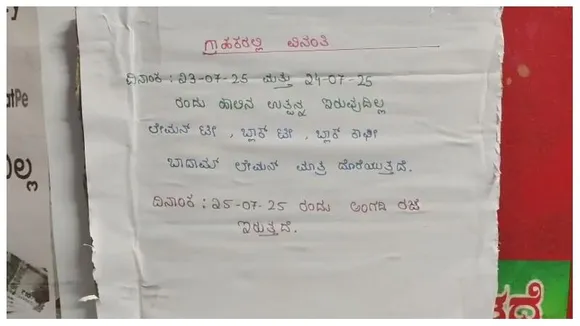 ಗ್ರಾಹಕರಲ್ಲಿ ವಿನಂತಿ
ದಿನಾಂಕ : 23-07-25 ಮತ್ತು 24-07-25
ರಂದು ಹಾಲಿನ ಉತ್ಪನ್ನ ಇರುವುದಿಲ್ಲ
ಲೇಮನ್ ಟೀ , ಬ್ಲಾಕ್ ಟೀ , ಬ್ಲಾಕ್ ಕಾಫೀ
ಬಾದಾಮ್ ಲೇಮನ್ ಮಾತ್ರ ದೊರೆಯುತ್ತದೆ.
ದಿನಾಂಕ : 25-07-25 ರಂದು ಅಂಗಡಿ ರಜೆ
ಇರುತ್ತದೆ.
atPe